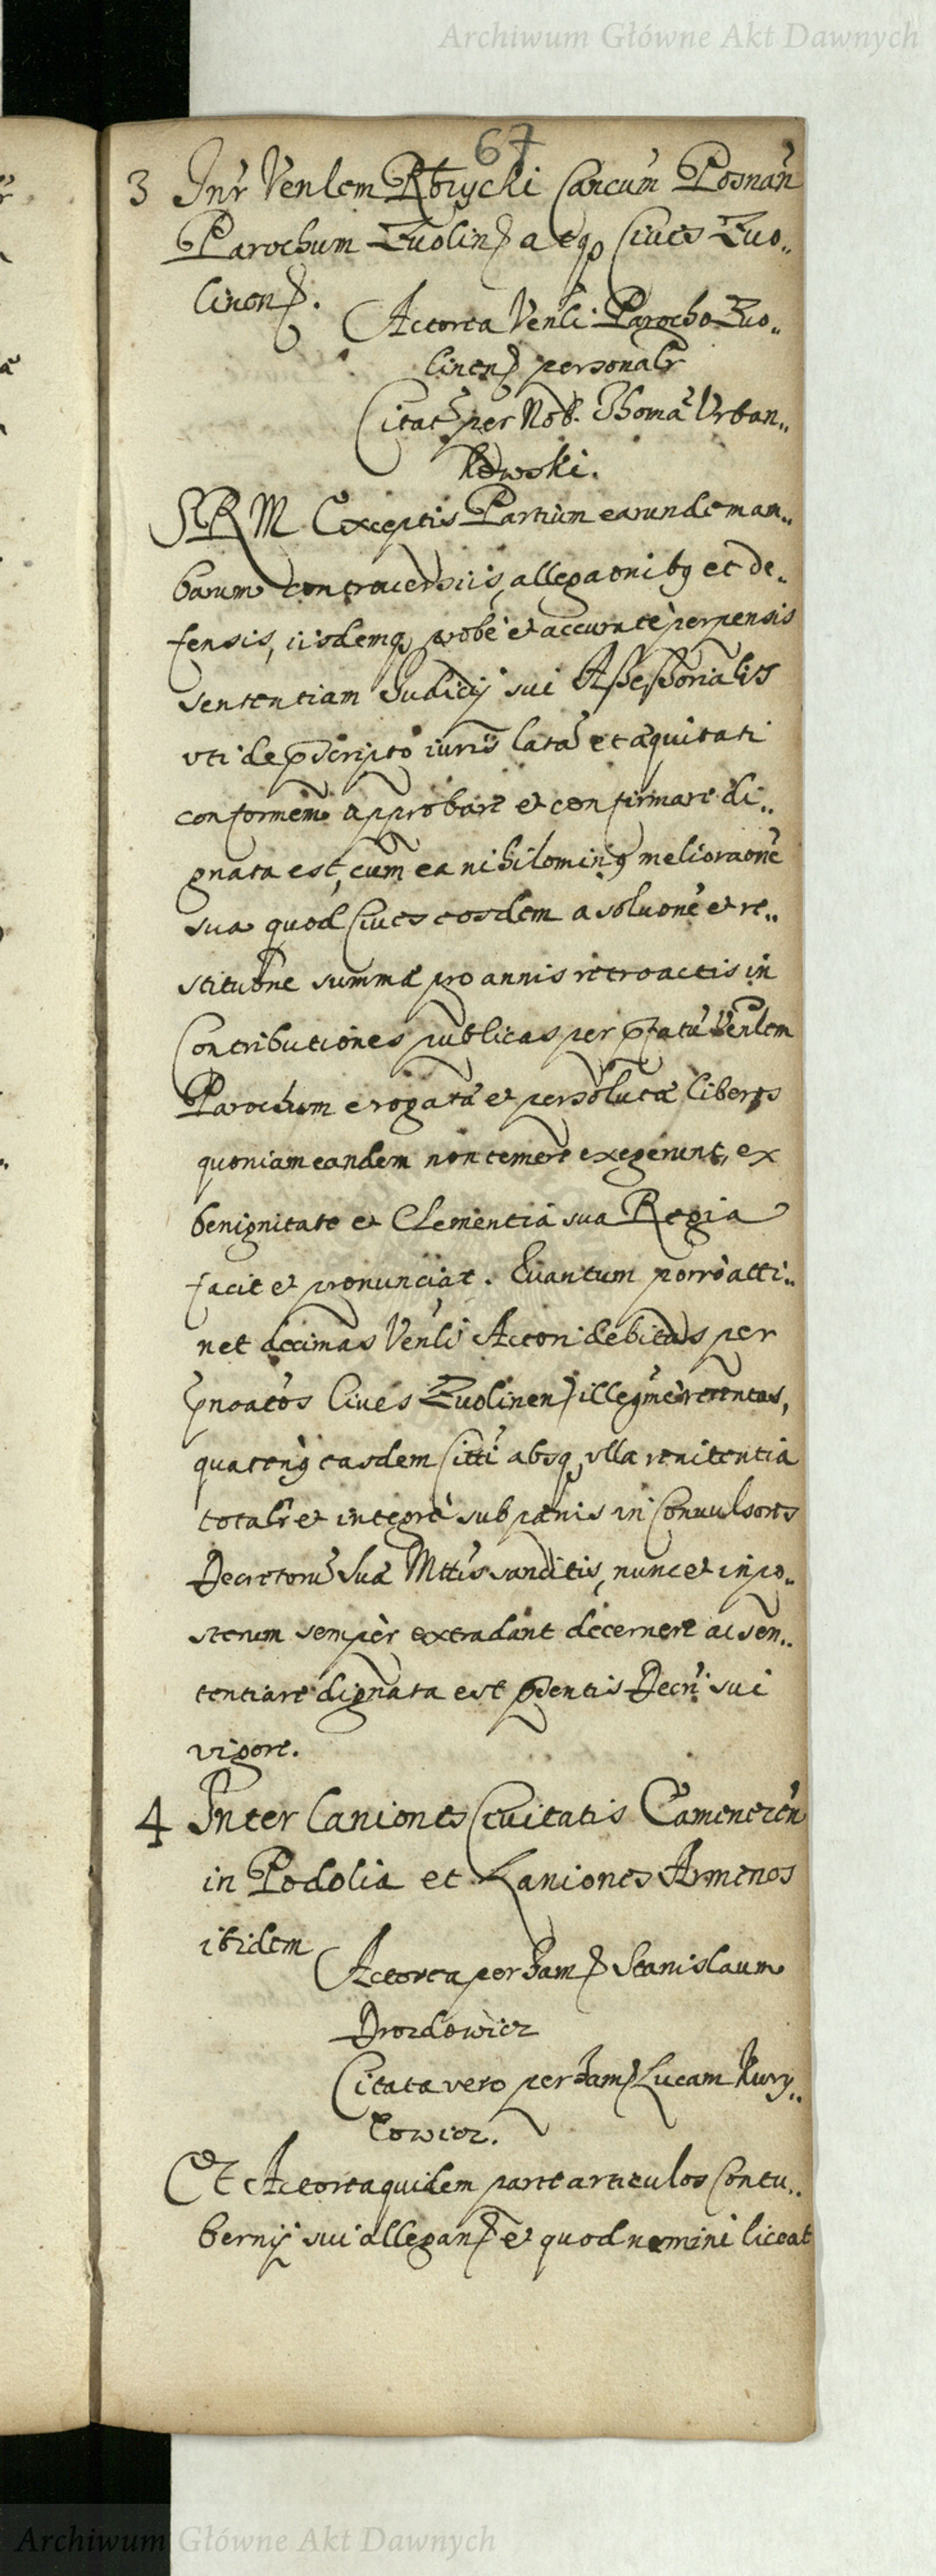 Archiwum Główne Akt Dawnych
67
3 Intr Venlem Rbrycki Cancum Posnan
Parochum Zuolinen atqꝫ Cives Zuo„
linen.
Actorea Venli Parocho Zuo„
linen personalr
Citata per Nob. Thoma Urban„
kowski.
SRM Exceptis Partium earundem am„
barum controversiis, allegaonibꝫ et de„
fensis, iisdemqꝫ probe et accurate perpensis
sententiam Judicij sui Assessorialis
uti de pscripto iuris lata et aequitati
conformem approbare et confirmare di„
gnata est, cum ea nihilominꝫ melioraone
sua quod Cives eosdem a soluone et re„
stitutione summae pro annis retroactis in
Contributiones publicas per pfatu Venlem
Parochum erogata et persoluta liberos
quoniam eandem non temere exegerunt, ex
benignitate et Clementia sua Regia
facit et pronunciat. Quantum porro atti„
net decimas Venli Actori debitas per
pnoatos Cives Zuolinen illegme retentas,
quatenꝫ easdem Citti absqꝫ ulla renitentia
totalr et integre sub paenis in Convulsores
Decretoru Suae Mttis sancitis, nunc et in po„
sterum semper extradant decernere ac sen„
tentiare dignata est pntis Decri sui
vigore.
4 Inter Laniones Civitatis Camenecen
in Podolia et Laniones Armenos
ibidem
Actorea per Fam Stanislaum
Drozdowicz
Citata vero per Fam Lucam Kury„
lowicz.
Et Actorea quidem parte articulos Contu„
bernij sui allegan et quod nemini liceat
Archiwum Główne Akt Dawnych